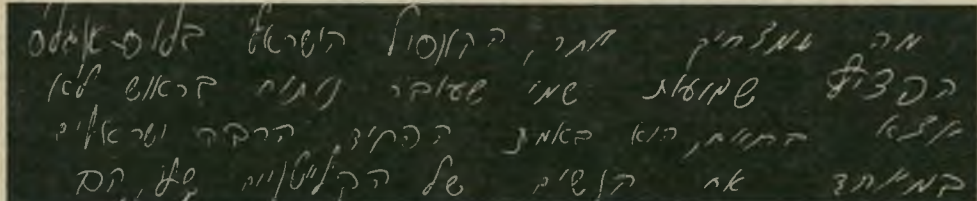 מה שמצחיק מתר, הקונסול הישראלי בלוס-אנג'לס
הפציץ שמועות שמי שעובר ניתוח בראש לא
יוצא בחיים, הוא באמת הפחיד הרבה ישראלים
במיוחד את הנשים של הקליטנייה שלו, הם